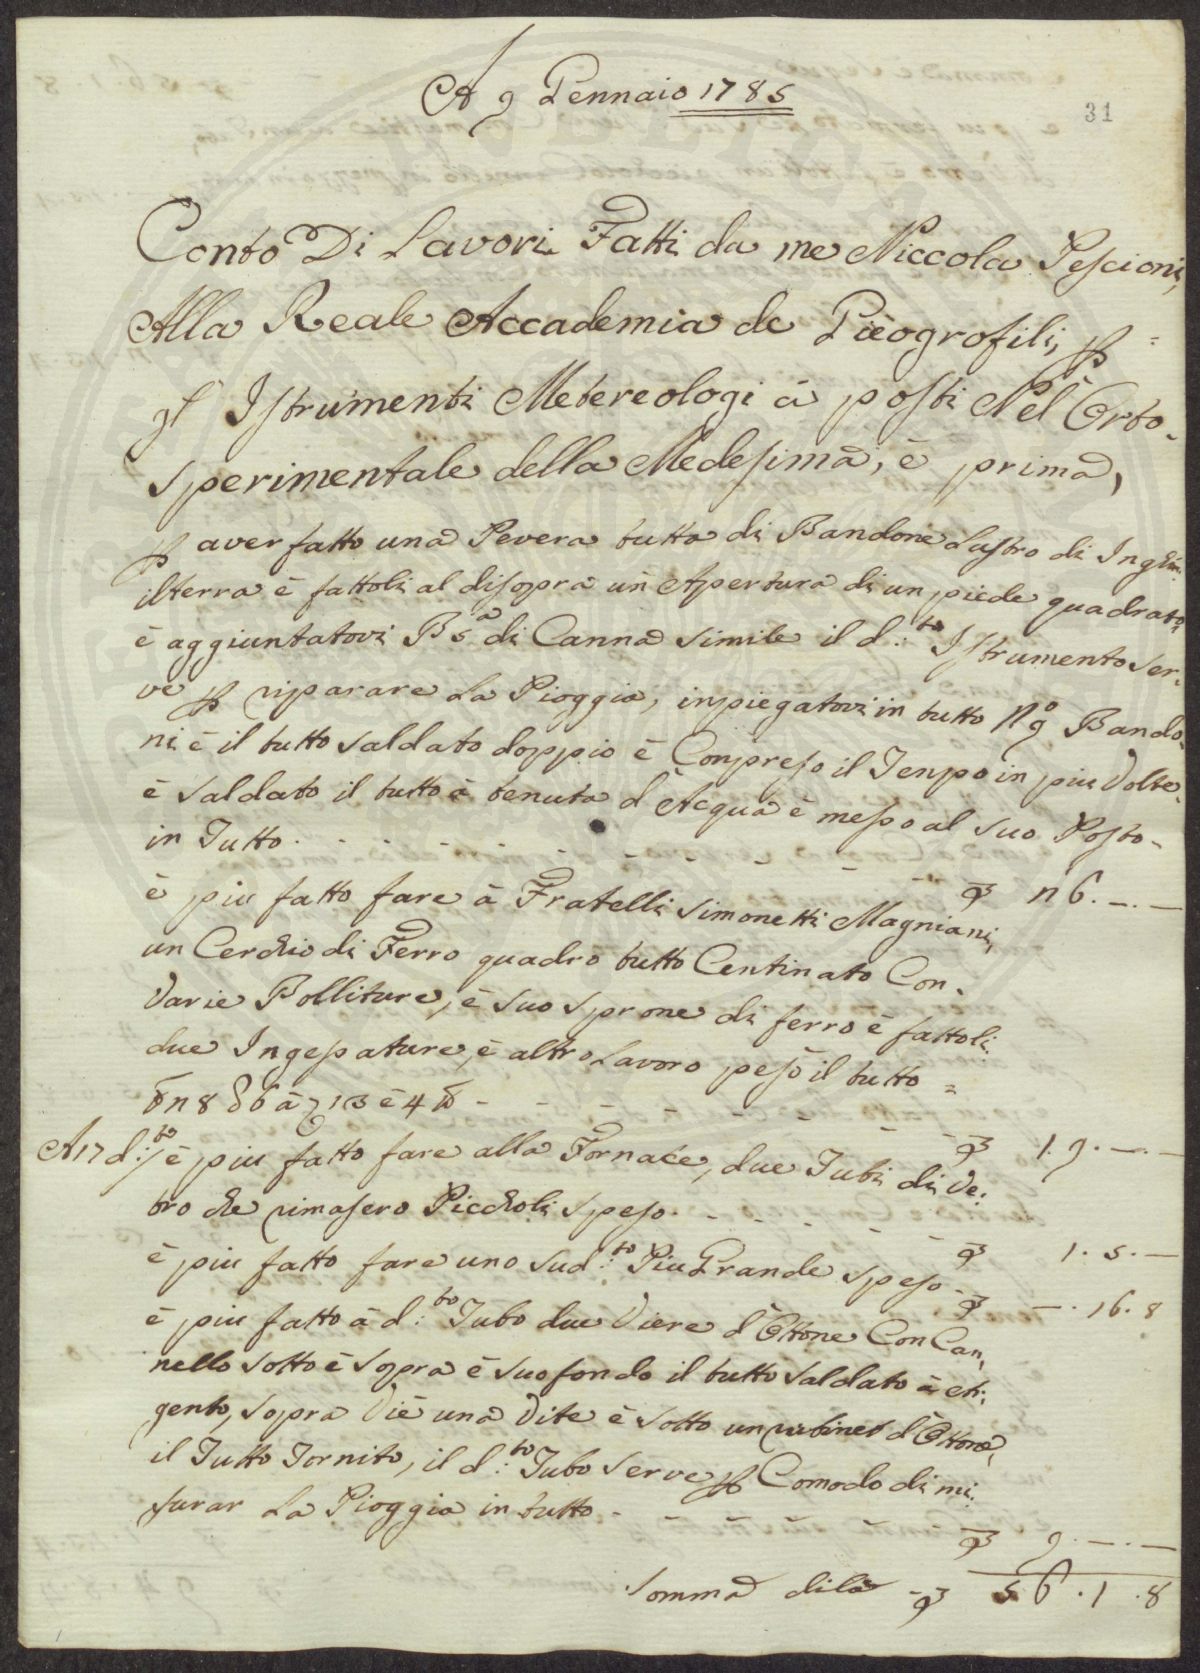 A 9 Gennaio 1785
31
Conto Di Lavori Fatti da me Niccola Pescioni,
Alla Reale Accademia de Gieogrofili, p
gl Istrumenti Metereologi à posti Nel Orto
sperimentale della Medesima, è prima,
p aver fatto una Pevera tutta di Bandone Lastro di Inghi
ilterra è fattoli al disopra un Apertura di un piede quadrato
è aggiuntatovi B 5a di Canna simile il d:to Istrumento ser
ve p riparare La Pioggia, inpiegatovi in tutto n 9 Bando
ni è il tutto saldato doppio è Conpreso il Tenpo in piu Volte
è saldato il tutto à tenuta d'Acqua è messo al suo Posto
in Tutto
è piu fatto fare à Fratelli Simonetti Magniani,
un Cerchio di Ferro quadro tutto Centinato Con
Varie Polliture, è suo sprone di ferro è fattoli
due Ingessature, è altro Lavoro pesò il tutto =
A 17 d:to è piu fatto fare alla Fornace, due Tubi di Ve:
tro che rimasero Piccholi speso
1. 5. —
è piu fatto fare uno Sud:to Piu Grande speso
—. 16. 8
è piu fatto à d:to Tubo due Viere d'Ottone Con Can
nello sotto è sopra è suo fondo il tutto saldato à
gento, sopra Viè una Vite è sotto un d'Ottone,
il Tutto Tornito, il d:to Tubo serve p Comodo di mi
surar La Pioggia in tutto
9. —. —
Somma dila 56. 1. 8